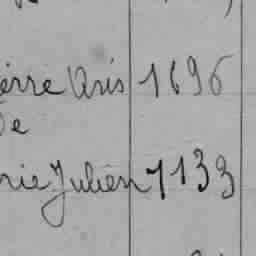 ierre Aris 1696
de
rie Julien 7133